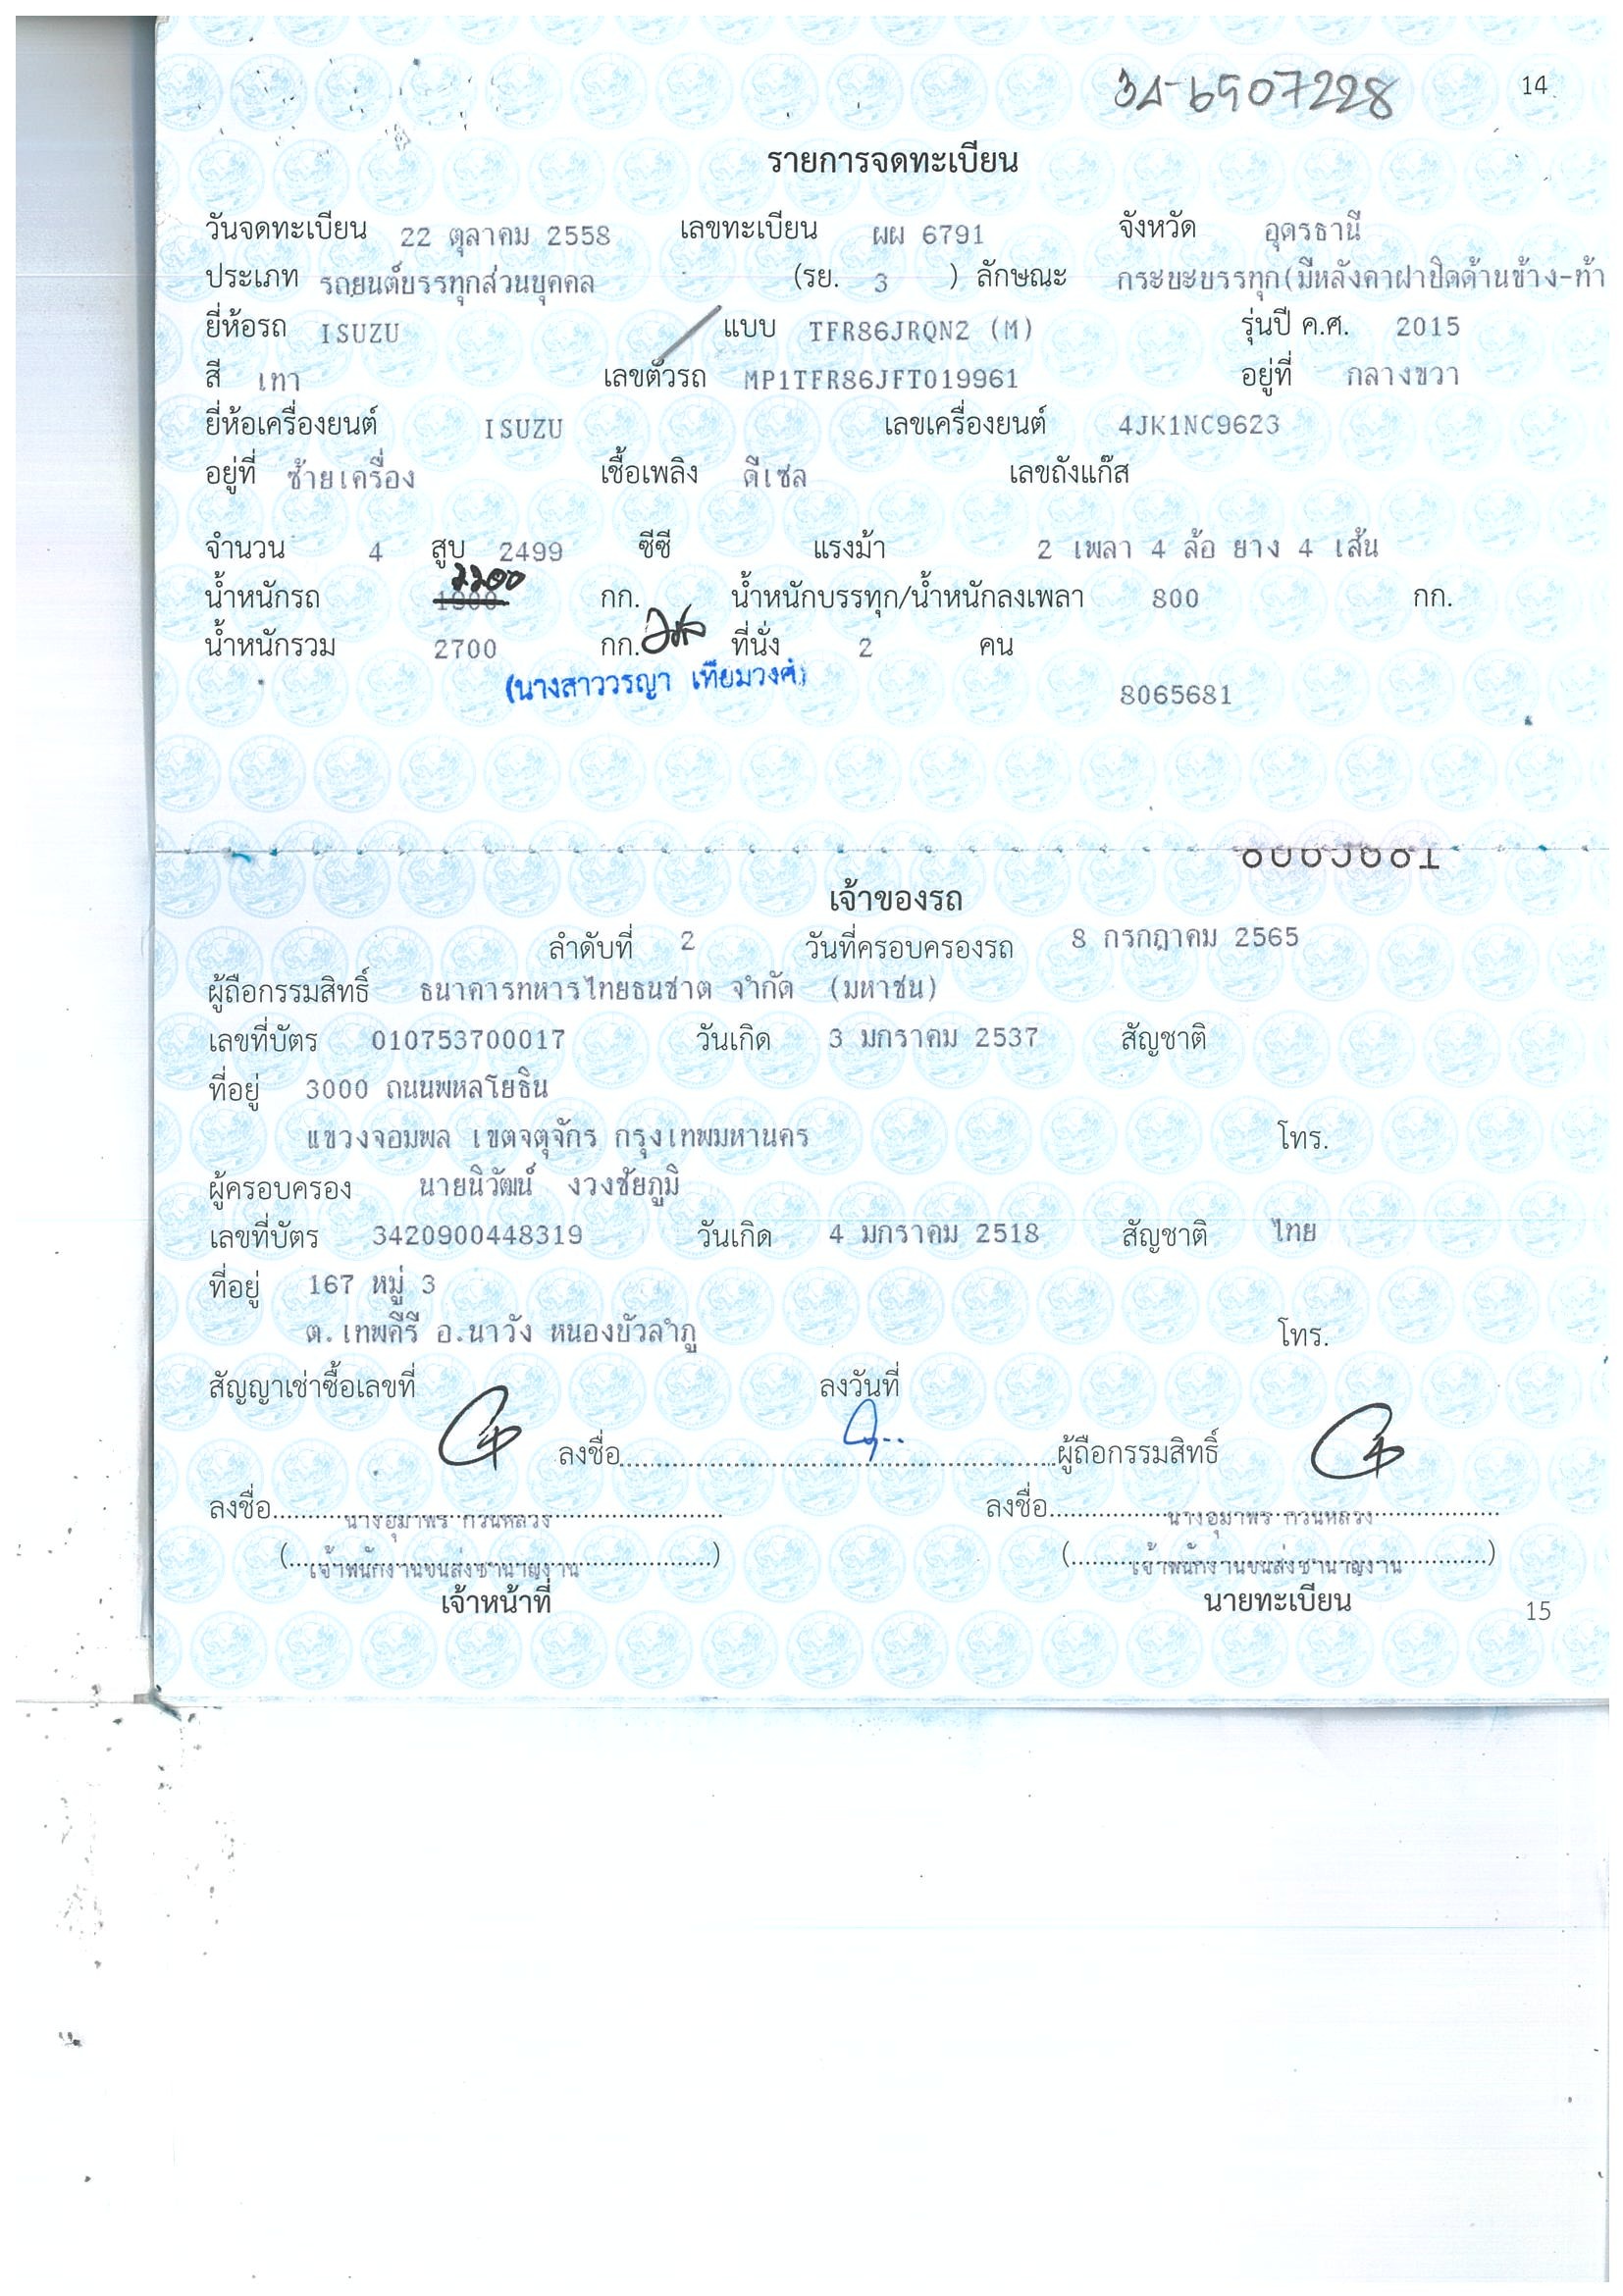 3ฒ-6907228
14
รายการจดทะเบียน
วันจดทะเบียน 22 ตุลาคม 2558 เลขทะเบียน ผผ 6791 จังหวัด อุดรธานี
ประเภท รถยนต์บรรทุกส่วนบุคคล (รย. 3 ) ลักษณะ กระบะบรรทุก(มีหลังคาฝาปิดด้านข้าง-ท้า
ยี่ห้อรถ ISUZU แบบ TFR86JRQN2 (M) รุ่นปี ค.ศ. 2015
สี เทา เลขตัวรถ MP1TFR86JFT019961 อยู่ที่ กลางขวา
ยี่ห้อเครื่องยนต์ ISUZU เลขเครื่องยนต์ 4JK1NC9623
อยู่ที่ ซ้ายเครื่อง เชื้อเพลิง ดีเซล เลขถังแก๊ส
จำนวน 4 สูบ 2499 ซีซี แรงม้า 2 เพลา 4 ล้อ ยาง 4 เส้น
2200
น้ำหนักรถ 1900 กก. น้ำหนักบรรทุก/น้ำหนักลงเพลา 800 กก.
น้ำหนักรวม 2700 กก. ที่นั่ง 2 คน
(นางสาววรญา เทียมวงศ์)
8065681
8065681
เจ้าของรถ
ลำดับที่ 2 วันที่ครอบครองรถ 8 กรกฎาคม 2565
ผู้ถือกรรมสิทธิ์ ธนาคารทหารไทยธนชาต จำกัด (มหาชน)
เลขที่บัตร 010753700017 วันเกิด 3 มกราคม 2537 สัญชาติ
ที่อยู่ 3000 ถนนพหลโยธิน
แขวงจอมพล เขตจตุจักร กรุงเทพมหานคร โทร.
ผู้ครอบครอง นายนิวัฒน์ งวงชัยภูมิ
เลขที่บัตร 3420900448319 วันเกิด 4 มกราคม 2518 สัญชาติ ไทย
ที่อยู่ 167 หมู่ 3
ต.เทพคีรี อ.นาวัง หนองบัวลำภู โทร.
สัญญาเช่าซื้อเลขที่ ลงวันที่
ลงชื่อ ผู้ถือกรรมสิทธิ์
ลงชื่อ นางอุมาพร กวนหลวง ลงชื่อ นางอุมาพร กวนหลวง
(เจ้าพนักงานขนส่งชำนาญงาน) (เจ้าพนักงานขนส่งชำนาญงาน)
เจ้าหน้าที่ นายทะเบียน
15